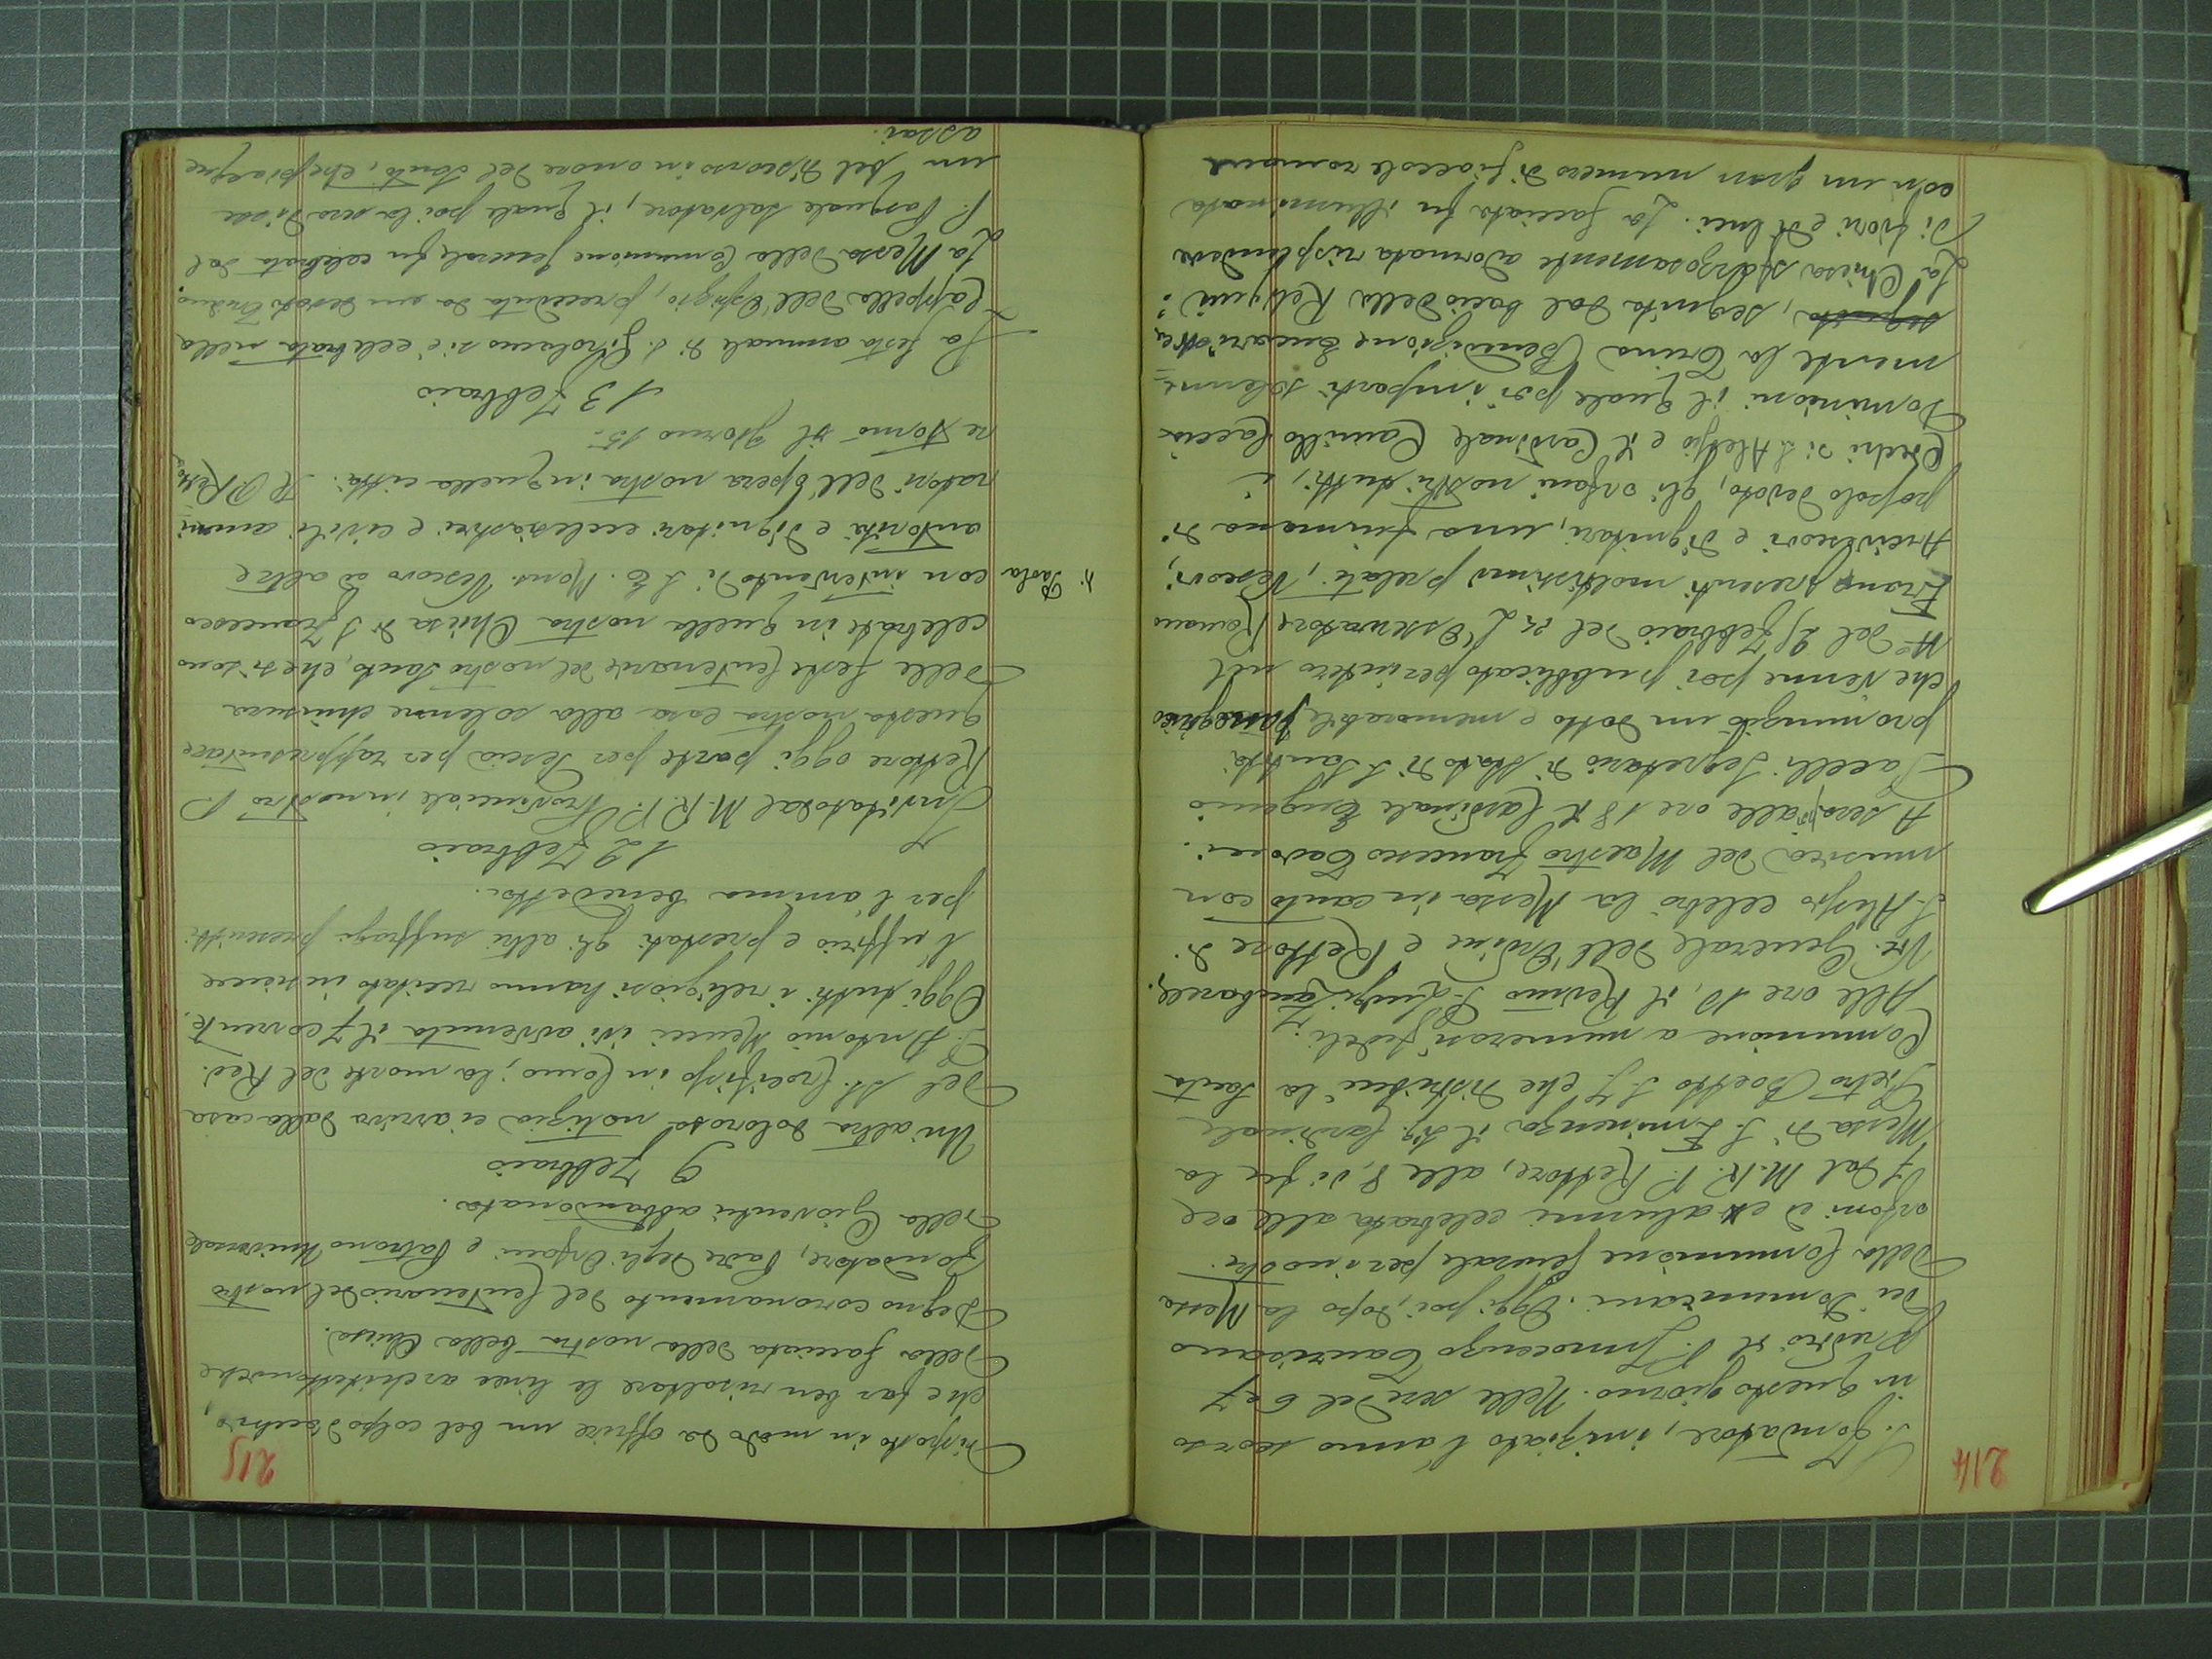 214
S. Fondatore, iniziato l'anno scorso
in questo giorno. Nelle sere del 6 e 7
predicò il P. Innocenzo Taurisano
dei Domenicani. Oggi poi, dopo la Messa
della Comunione generale per i nostri
orfani ed ex alunni celebrata alle ore
7 dal M. R. P. Rettore, alle 8, vi fu la
Messa di S. Eminenza il Sig. Cardinale
Pietro Boetto S. J. che distribuì la Santa
Comunione a numerosi fedeli.
Alle ore 10, il Rev.mo P. Luigi Zambarelli,
Vic. Generale dell'Ordine e Rettore di
S. Alessio celebrò la Messa in canto con
musica del Maestro Francesco Tavoni.
A sera, poi alle ore 18 il Cardinale Eugenio
Pacelli Segretario di Stato di S. Santità
pronunziò un dotto e memorabile panegirico
che venne poi pubblicato per intero nel
N° del 9 Febbraio del "L'Osservatore Romano
Erano presenti moltissimi prelati, Vescovi,
Arcivescovi e dignitari, una fiumana di
popolo devoto, gli orfani nostri tutti, i
Ciechi di S. Alessio e il Cardinale Camillo Caccia
Dominioni il quale poi impartì solenne=
mente la Trina Benedizione Eucaristica,
seguita, seguita dal bacio della Reliquia:
La Chiesa sfarzosamente adornata risplendeva
di fiori e di luci. La facciata fu illuminata
con un gran numero di fiaccole romane
215
disposte in modo da offrire un bel colpo d'occhio,
che far ben risaltare le linee architettoniche
della facciata della nostra bella Chiesa.
Degno coronamento del Centenario del nostro
Fondatore, Padre degli Orfani e Patrono Universale
della Gioventù abbandonata.
9 Febbraio
Un'altra dolorosa notizia ci arriva dalla casa
del SS. Crocifisso in Como; la morte del Rev.
P. Antonio Meucci ivi avvenuta il 7 corrente.
Oggi tutti i religiosi hanno recitato insieme
l'uffizio e prestati gli altri suffragi prescritti
per l'anima benedetta.
12 Febbraio
Invitato dal M. R. P. Provinciale il nostro P.
Rettore oggi parte per Pescia per rappresentare
questa nostra casa alla solenne chiusura
delle feste Centenarie del nostro Santo, che si sono
celebrate in quella nostra Chiesa di S. Francesco
di Paola
con intervento di S. E. Mons. Vescovo ed altre
autorità e dignitari ecclesiastici e civili ammi=
ratori dell'Opera nostra in quella città. Il P. Rettore
ne tornò il giorno 15.
13 Febbraio
La festa annuale di S. Girolamo si è celebrata nella
Cappella dell'Ospizio, preceduta da un devoto Triduo.
La Messa della Comunione generale fu celebrata dal
P. Pasquale Salvatore, il quale poi la sera disse
un bel discorso in onore del Santo, che piacque
assai.